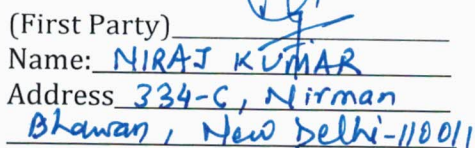 (First Party)
Name: NIRAJ KUMAR
Address 334-C, Nirman
Bhawan, New Delhi-110011